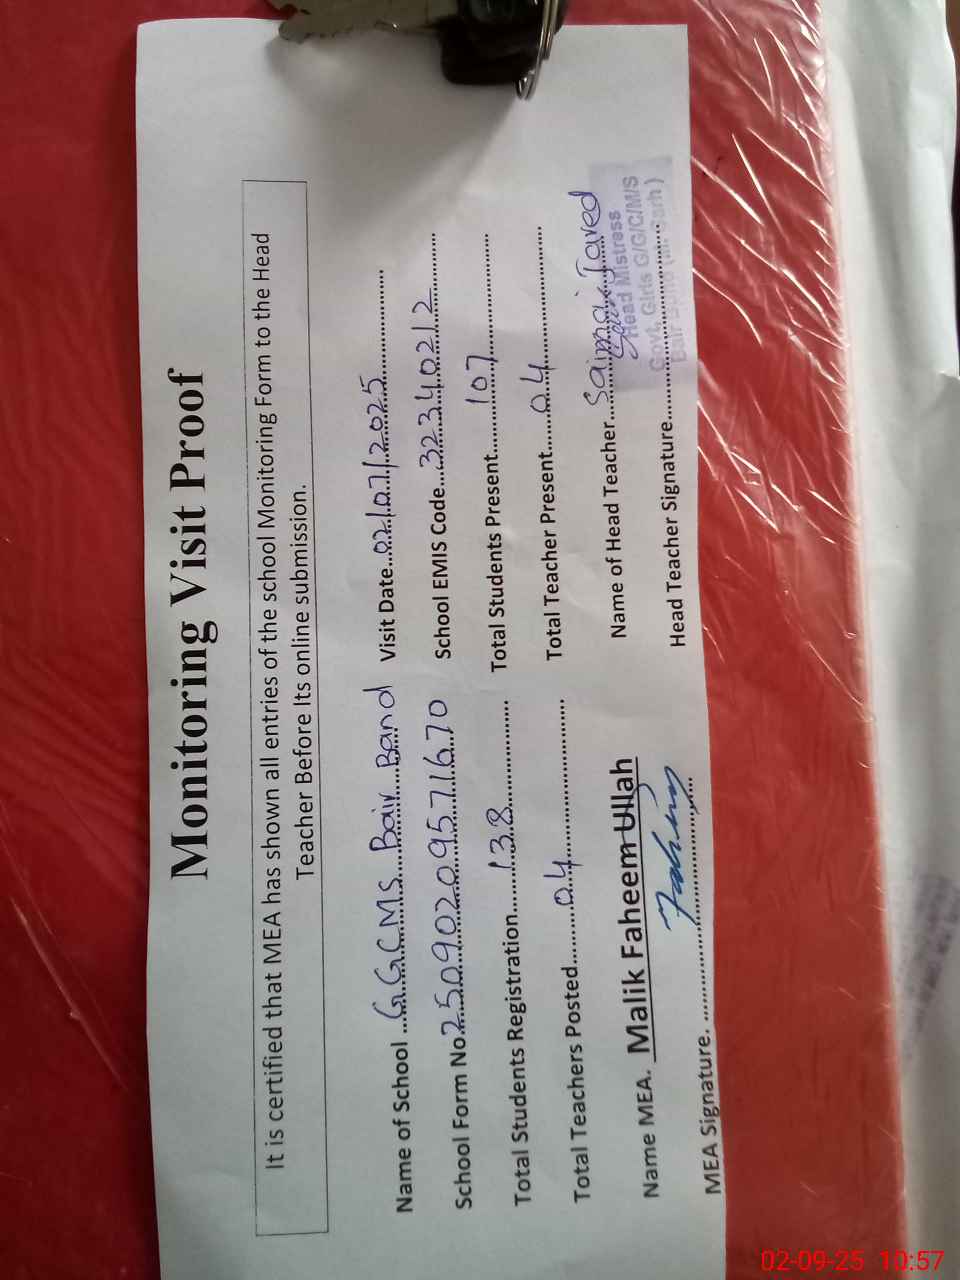 Monitoring Visit Proof
It is certified that MEA has shown all entries of the school Monitoring Form to the Head
Teacher Before Its online submission.
Name of School ...GGCMS Bair Band Visit Date...02/07/2025
School Form No.250902095716 70 School EMIS Code...32340212
Total Students Registration.......138 Total Students Present.......107
Total Teachers Posted.......04 Total Teacher Present.......04
Name MEA. Malik Faheem Ullah Name of Head Teacher....Saima Javed
MEA Signature. Faheem Head Teacher Signature
Head Mistress
Govt, Girls G/G/C/M/S
Bair
02-09-25 10:57